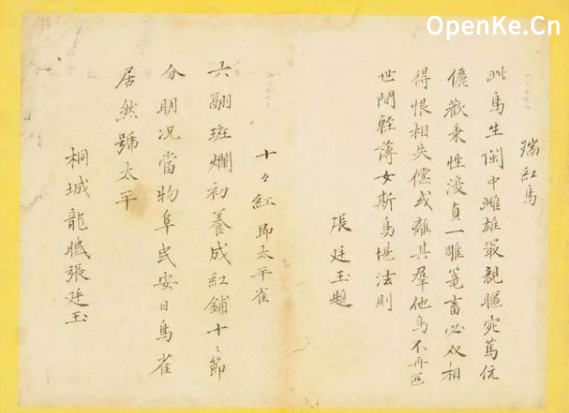 OpenKe.Cn
瑞紅鳥
此鳥生閩中雌雄最親暱宛篤伉
儷歡秉性復貞一雕篭畜必双相
得恨相失儻或離其羣他鳥不再匹
世間輕薄女斯鳥堪法則
張廷玉題
十二紅 即太平雀
六翮斑斕初養成紅鋪十二節
分明況當物阜民安日鳥雀
居然號太平
桐城龍眠張廷玉